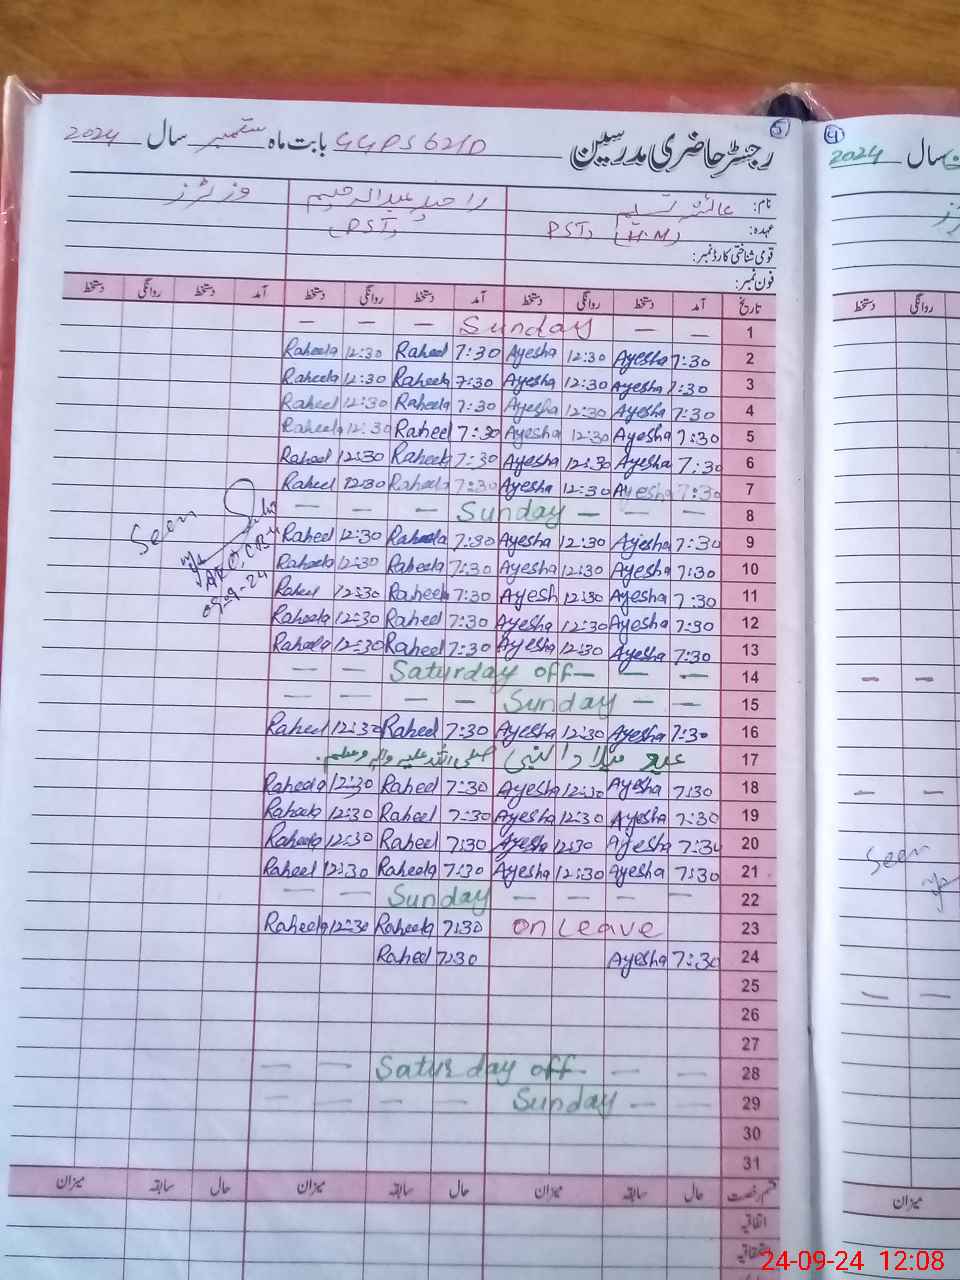 رجسٹر حاضری مدرسین GGPS 62/D بابت ماہ ستمبر سال 2024
5
نام: عائشہ راحیلہ عبدالرحیم وزٹرز
عہدہ: PST (H.M) PST
قومی شناختی کارڈ نمبر:
فون نمبر:
تاریخ آمد دستخط روانگی دستخط آمد دستخط روانگی دستخط آمد دستخط روانگی دستخط
1 — — Sunday — — —
2 7:30 Ayesha 12:30 Ayesha 7:30 Raheel 12:30 Raheela
3 7:30 Ayesha 12:30 Ayesha 7:30 Raheela 12:30 Raheela
4 7:30 Ayesha 12:30 Ayesha 7:30 Raheela 12:30 Raheel
5 7:30 Ayesha 12:30 Ayesha 7:30 Raheel 12:30 Raheela
6 7:30 Ayesha 12:30 Ayesha 7:30 Raheela 12:30 Raheel
7 7:30 Ayesha 12:30 Ayesha 7:30 Raheela 12:30 Raheel
8 — — — Sunday — — —
9 7:30 Ayesha 12:30 Ayesha 7:30 Raheela 12:30 Raheel
10 7:30 Ayesha 12:30 Ayesha 7:30 Raheela 12:30 Raheela
11 7:30 Ayesha 12:30 Ayesh 7:30 Raheela 12:30 Raheel
12 7:30 Ayesha 12:30 Ayesha 7:30 Raheel 12:30 Raheela
13 7:30 Ayesha 12:30 Ayesha 7:30 Raheel 12:30 Raheela
14 — — — Saturday off — —
15 — — Sunday — — — —
16 7:30 Ayesha 12:30 Ayesha 7:30 Raheel 12:30 Raheel
17 عید میلاد النبی صلی اللہ علیہ وآلہ وسلم
18 7:30 Ayesha 12:30 Ayesha 7:30 Raheel 12:30 Raheela
19 7:30 Ayesha 12:30 Ayesha 7:30 Raheel 12:30 Raheela
20 7:30 Ayesha 12:30 Ayesha 7:30 Raheel 12:30 Raheela
21 7:30 Ayesha 12:30 Ayesha 7:30 Raheela 12:30 Raheel
22 — — — — Sunday — —
23 on Leave 7:30 Raheela 12:30 Raheela
24 7:30 Ayesha 7:30 Raheel
25
26
27
28 — — Saturday off — —
29 — — Sunday — — — —
30
31
Seen
05-9-24
قسم رخصت حال سابقہ میزان حال سابقہ میزان حال سابقہ میزان
اتفاقیہ
4
سال 2024
روانگی دستخط
Seen
میزان
24-09-24 12:08